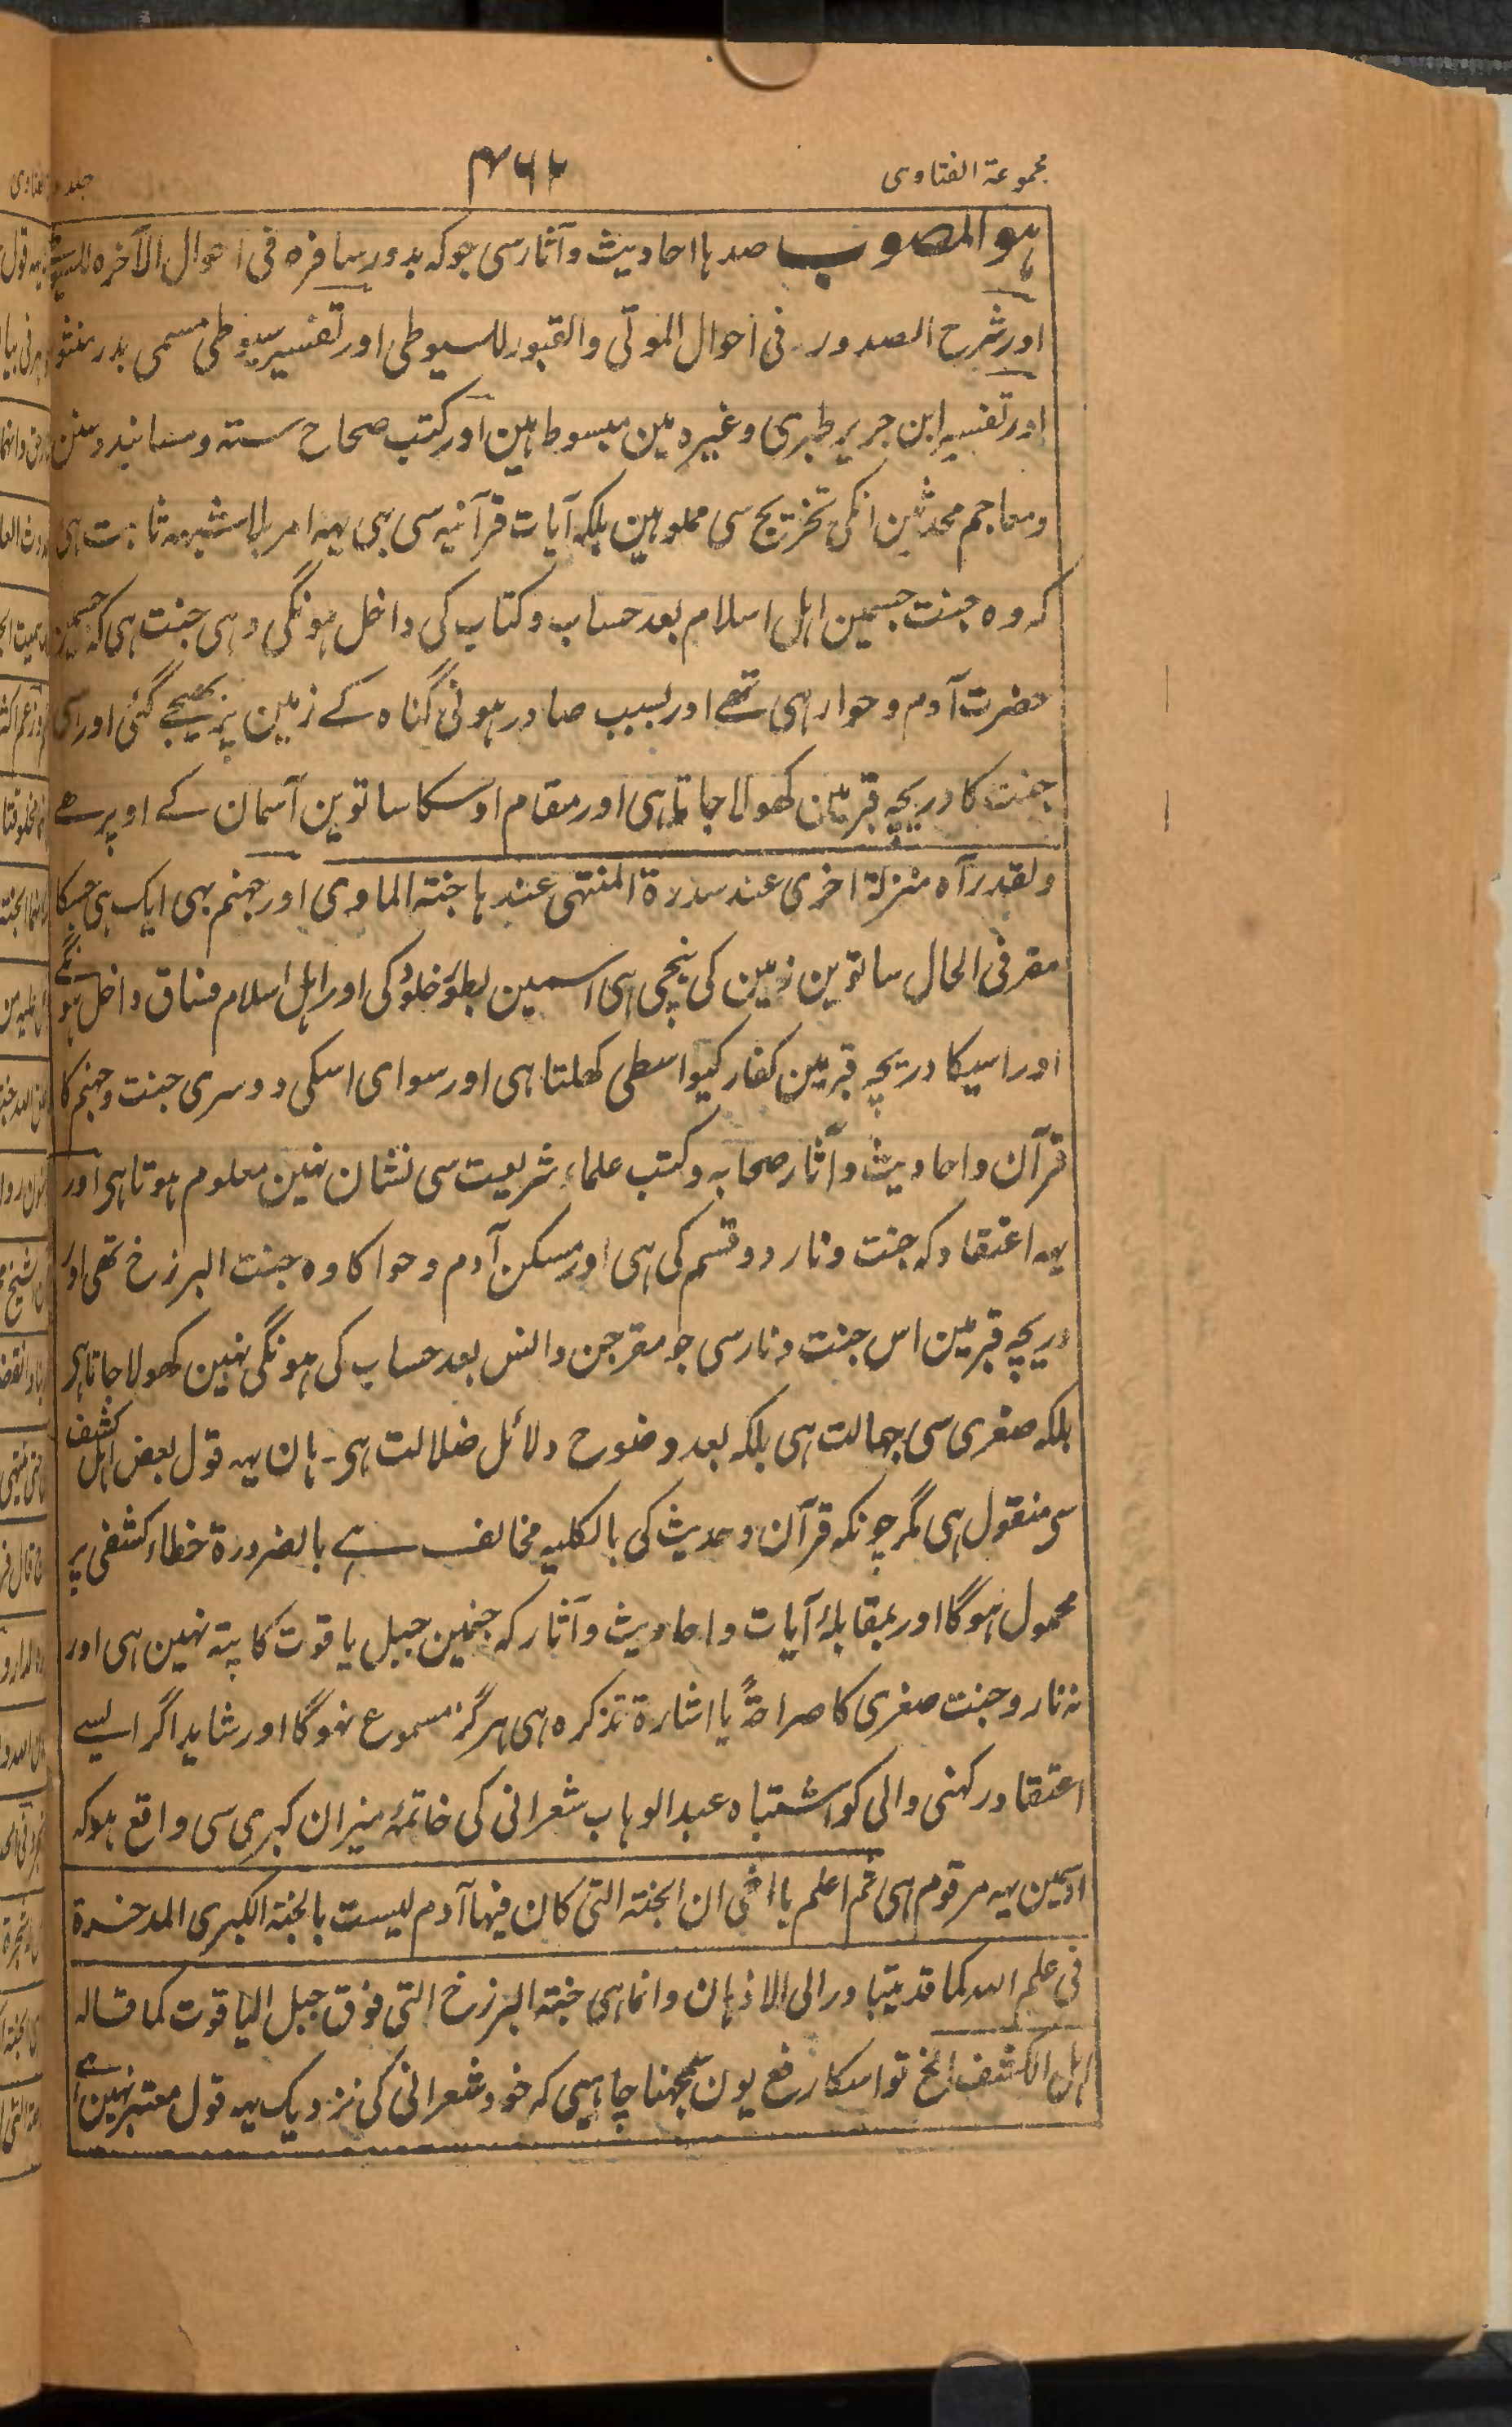 مجموعۃ الفتاوی
۴۶۲
جلد
ہو المصوب صدہا احادیث و آثار سی جو کہ بدور سافرہ فی احوال الآخرہ للسیوطی
اور شرح الصدور فی احوال الموتی والقبور للسیوطی اور تفسیر سیوطی مسمی بدر منثور
اور تفسیر ابن جریر طبری وغیرہ مین مبسوط ہین اور کتب صحاح ستہ و مسانید و سنن
و معاجم محدثین انکی تخریج سی مملو ہین بلکہ آیات قرآنیہ سی بہی یہہ امر بلاشبہہ ثابت ہی
کہ وہ جنت جسمین اہل اسلام بعد حساب و کتاب کی داخل ہونگی وہی جنت ہی کہ جسمین
حضرت آدم و حوا رہی تھے اور بسبب صادر ہونی گناہ کے زمین پر بھیجے گئی اور اسی
جنت کا دریچہ قبر مین کھولا جاتا ہی اور مقام اوسکا ساتوین آسمان کے اوپر ہے
ولقد رآہ منزلۃ اخری عند سدرۃ المنتہی عندہا جنۃ الماوی اور جہنم بہی ایک ہی جسکا
مقر فی الحال ساتوین زمین کی نیچی ہی اسمین بطور خلود کی اور اہل اسلام فساق داخل ہونگے
اور اسیکا دریچہ قبر مین کفار کیواسطی کھلتا ہی اور سوای اسکی دوسری جنت و جہنم کا
قرآن و احادیث و آثار صحابہ و کتب علماء شریعت سی نشان نہین معلوم ہوتا ہی اور
یہہ اعتقاد کہ جنت و نار دو قسم کی ہی اور مسکن آدم و حوا کا وہ جنت البرزخ تھی اور
دریچہ قبر مین اس جنت و نار سی جو مقر جن و انس بعد حساب کی ہونگی نہین کھولا جاتا ہی
بلکہ صغری سی جہالت ہی بلکہ بعد وضوح دلائل ضلالت ہی۔ ہان یہہ قول بعض اہل کشف
سی منقول ہی مگر چونکہ قرآن و حدیث کی بالکلیہ مخالف ہے بالضرورۃ خطاء کشفی پر
محمول ہوگا اور بمقابلۂ آیات و احادیث و آثار کہ جنمین جبل یاقوت کا پتہ نہین ہی اور
نہ نار و جنت صغری کا صراحۃً یا اشارۃ تذکرہ ہی ہرگز مسموع نہوگا اور شاید اگر ایسے
اعتقاد رکہنی والی کو اشتباہ عبدالوہاب شعرانی کی خاتمۂ میزان کبری سی واقع ہو کہ
اوسمین یہہ مرقوم ہی ثم اعلم یا اخی ان الجنۃ التی کان فیہا آدم لیست بالجنۃ الکبری المدخرۃ
فی علم اللہ کما قد یتبادر الی الاذہان وانما ہی جنۃ البرزخ التی فوق جبل الیاقوت کما قالہ
اہل الکشف الخ تو اسکا رفع یون سمجہنا چاہیی کہ خود شعرانی کی نزدیک یہہ قول معتبر نہین ہے